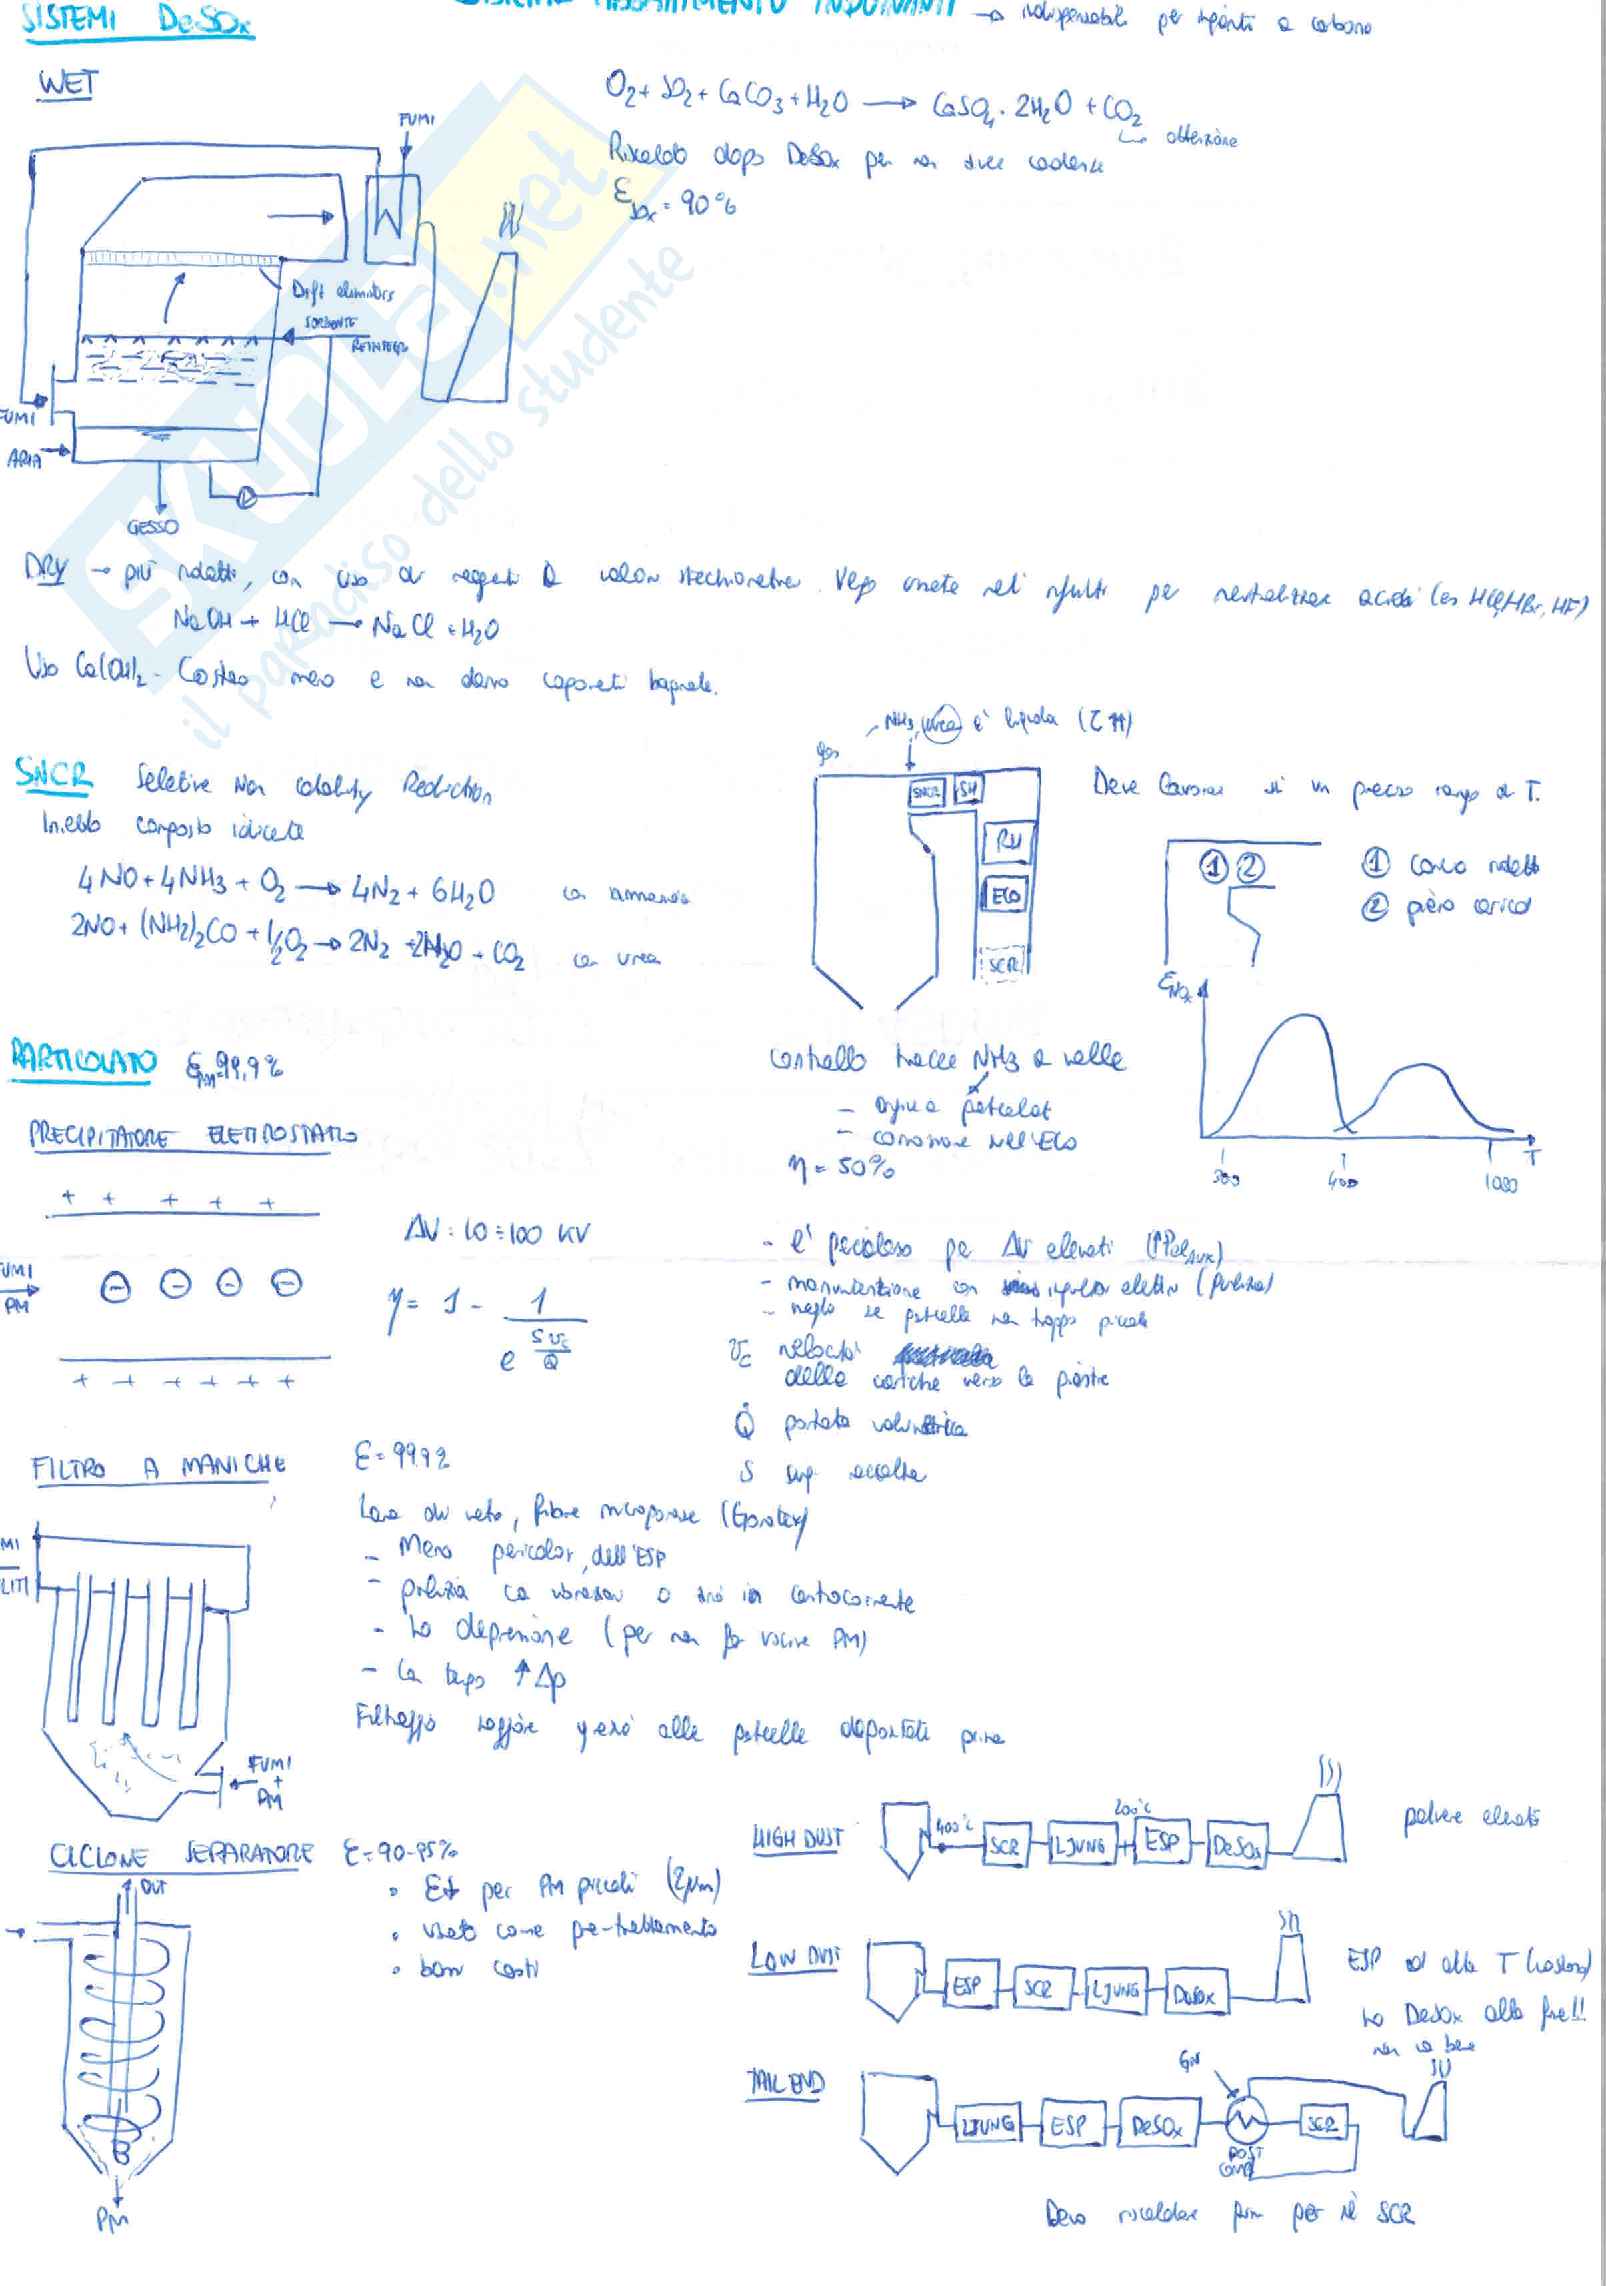 SISTEMI DeSOx
SISTEMI ABBATTIMENTO INQUINANTI → indispensabili per impianti a carbone
WET
O2 + SO2 + CaCO3 + H2O → CaSO4 · 2H2O + CO2
attenzione
Riscaldo dopo DeSOx per non avere condense
ε SOx = 90%
FUMI
Drift eliminators
SORBENTE
REINTEGRO
FUMI
ARIA
GESSO
DRY → più ridotti, con uso di reagenti valori stechiometrici. Vengono usate nei rifiuti per neutralizzare acidi (es HCl, HBr, HF)
NaOH + HCl → NaCl + H2O
Uso Ca(OH)2 - Costano meno e non danno componenti bagnate.
NH3, urea è liquida (τ ↑↑)
SNCR Selective Non Catality Reduction
Inietto composto riducente
4NO + 4NH3 + O2 → 4N2 + 6H2O con ammoniaca
2NO + (NH2)2CO + 1/2 O2 → 2N2 + 2H2O + CO2 con urea
gas
SNCR SH
RH
ECO
SCR
Deve lavorare in un preciso range di T.
1 2
1 carico ridotto
2 pieno carico
ε NOx
300 400 1000 T
controllo tracce NH3 a valle
- origina particolato
- corrosione nell'ECO
η = 50%
PARTICOLATO ε PM = 99,9%
PRECIPITATORE ELETTROSTATICO
+ + + + +
FUMI
PM
- - - -
+ + + + + +
ΔV: 10 ÷ 100 KV
η = 1 - 1 / e^(S vc / Q)
- è pericoloso per ΔV elevati (↑Pel AUX)
- manutenzione con elettr (pulizia)
- meglio se particelle non troppo piccole
vc velocità
delle cariche verso le piastre
Q̇ portata volumetrica
S sup raccolta
FILTRO A MANICHE ε = 99,9%
Lana di vetro, fibre microporose (Goretex)
- Meno pericolosi dell'ESP
- pulizia con vibrazioni o aria in controcorrente
- In depressione (per non far uscire PM)
- Con tempo ↑ Δp
Filtraggio maggiore grazie alle particelle depositate prima
FUMI
PULITI
FUMI
+
PM
CICLONE SEPARATORE ε = 90-95%
• ε↓ per PM piccoli (2μm)
• usato come pre-trattamento
• bassi costi
OUT
PM
HIGH DUST
400°C
SCR LJUNG
200°C
ESP DeSOx
polvere elevata
LOW DUST
ESP SCR LJUNG DeSOx
ESP ad alta T (costoso)
Ho DeSOx alla fine!!
non va bene
TAIL END
LJUNG ESP DeSOx
GN
POST
COMB
SCR
Devo riscaldare fumi per il SCR
SKUOLA.net
il paradiso dello studente